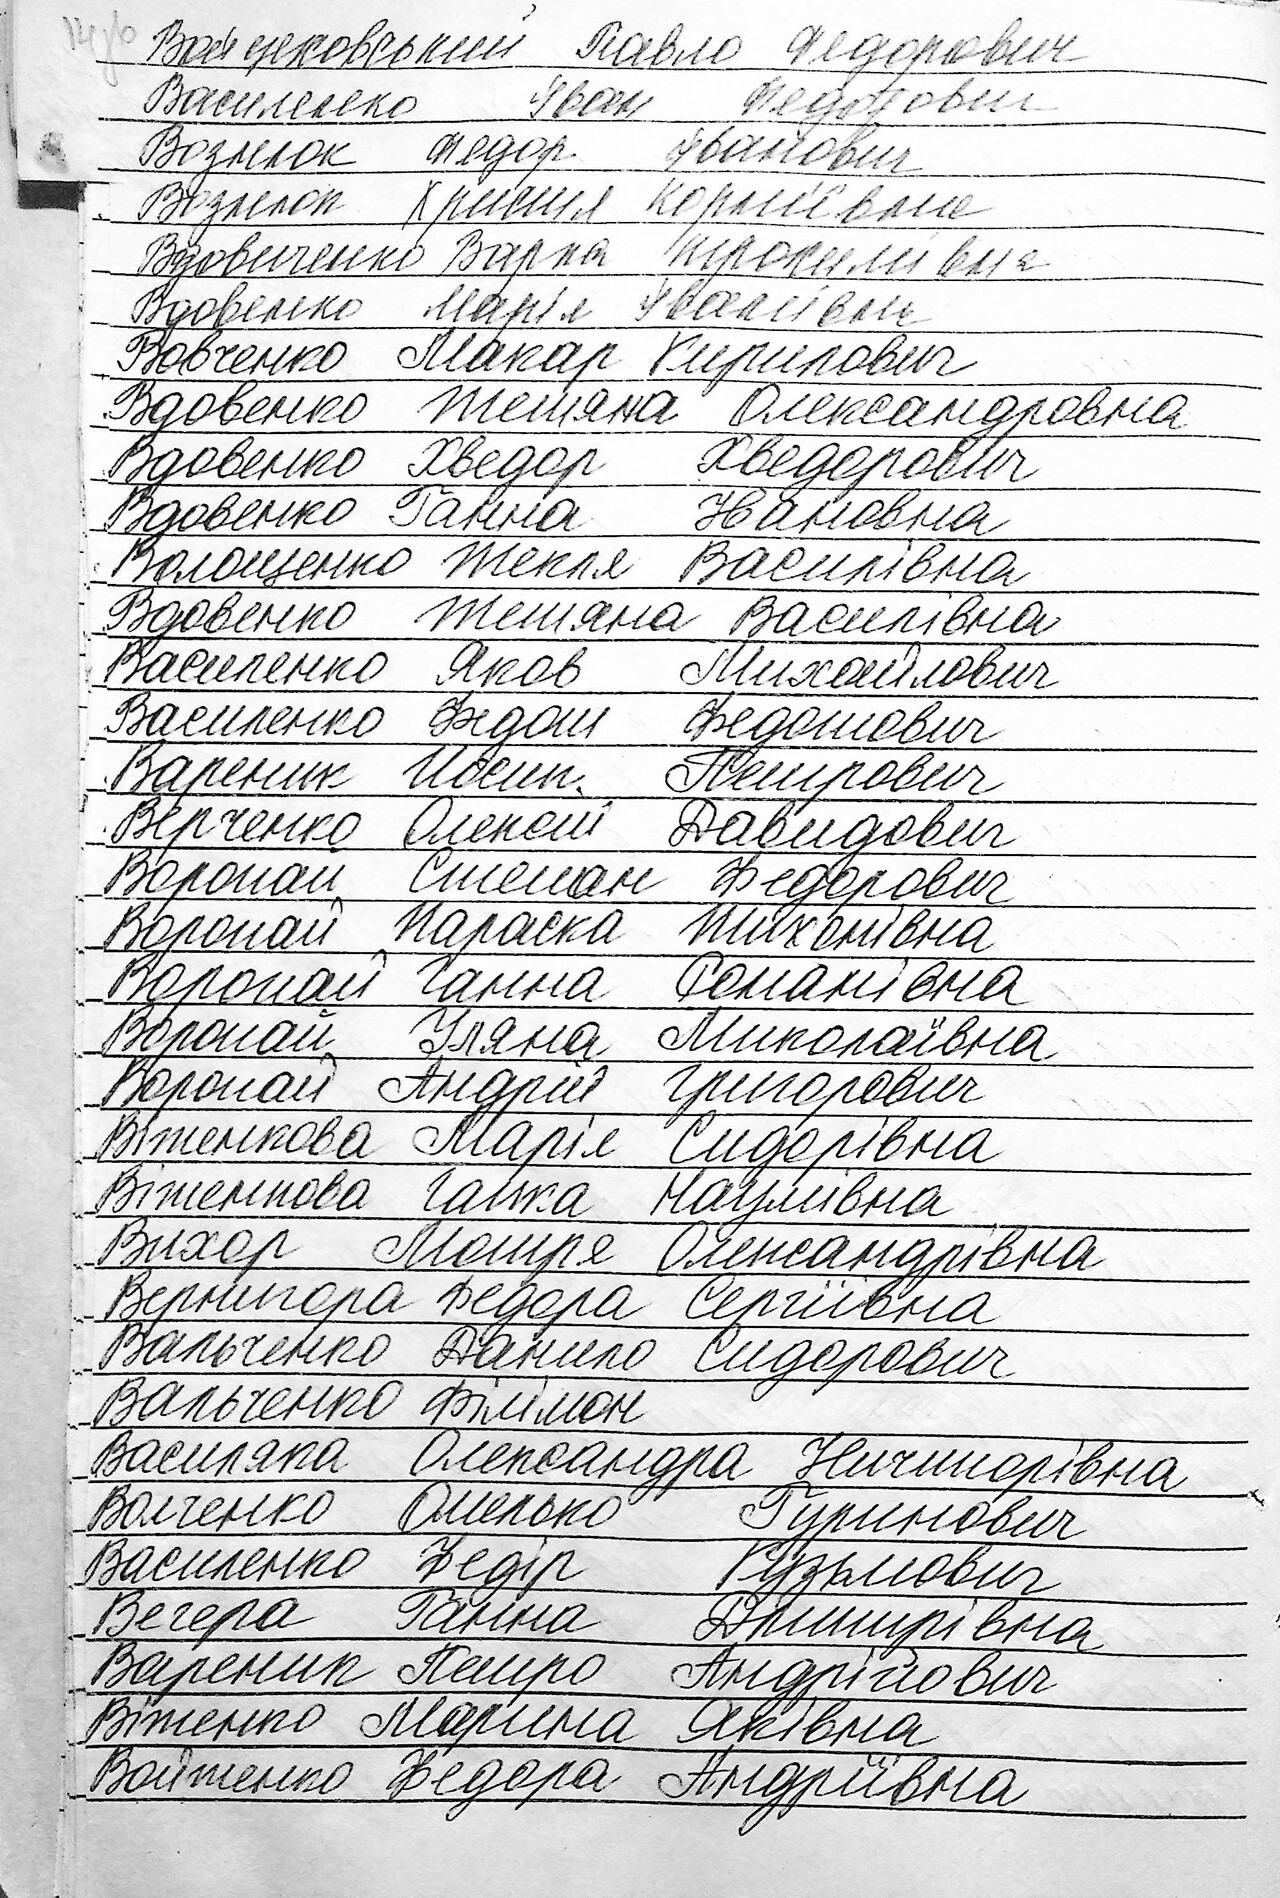 Войцеховський Павло Федорович
Василенко Іван Федотович
Возилок Федор Іванович
Возилок Христя Корніївна
Вдовиченко Варка Трохимівна
Вдовенко Марія Іванівна
Вовченко Макар Кирилович
Вдовенко Тетяна Олександровна
Вдовенко Хведор Хведорович
Вдовенко Ганна Івановна
Волощенко Текля Василівна
Вдовенко Тетяна Василівна
Василенко Яков Михайлович
Василенко Федот Федотович
Вареник Йосип Петрович
Верченко Олексій Давидович
Воропай Степан Федорович
Воропай Параска Тихонівна
Воропай Ганна Романівна
Воропай Уляна Миколаївна
Воропай Андрій Григорович
Вітенкова Марія Сидорівна
Вітенкова Ганка Наумівна
Вихор Мотря Олександрівна
Вернигора Федора Сергіївна
Вальченко Данило Сидорович
Вальченко Філімон
Василяка Олександра Ничипорівна
Волченко Омелько Гуринович
Василенко Федір Кузьмович
Вегера Ганна Дмитрівна
Вареник Петро Андрійович
Вітенко Марина Яківна
Войтенко Федора Андріївна